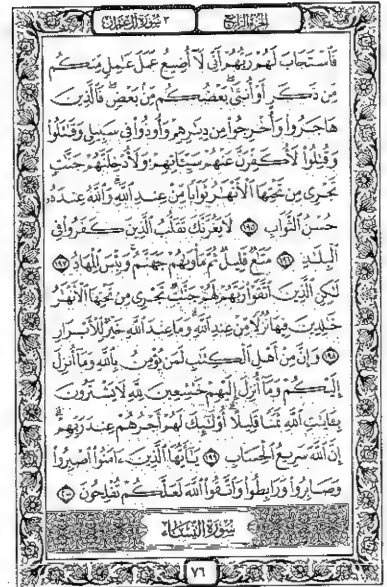 الجزء الرابع
٣ سورة آل عمران
فَٱسْتَجَابَ لَهُمْ رَبُّهُمْ أَنِّى لَآ أُضِيعُ عَمَلَ عَٰمِلٍ مِّنكُم
مِّن ذَكَرٍ أَوْ أُنثَىٰ بَعْضُكُم مِّنۢ بَعْضٍ فَٱلَّذِينَ
هَاجَرُوا۟ وَأُخْرِجُوا۟ مِن دِيَٰرِهِمْ وَأُوذُوا۟ فِى سَبِيلِى وَقَٰتَلُوا۟
وَقُتِلُوا۟ لَأُكَفِّرَنَّ عَنْهُمْ سَيِّـَٔاتِهِمْ وَلَأُدْخِلَنَّهُمْ جَنَّٰتٍ
تَجْرِى مِن تَحْتِهَا ٱلْأَنْهَٰرُ ثَوَابًا مِّنْ عِندِ ٱللَّهِ وَٱللَّهُ عِندَهُۥ
حُسْنُ ٱلثَّوَابِ ١٩٥ لَا يَغُرَّنَّكَ تَقَلُّبُ ٱلَّذِينَ كَفَرُوا۟ فِى
ٱلْبِلَٰدِ ١٩٦ مَتَٰعٌ قَلِيلٌ ثُمَّ مَأْوَىٰهُمْ جَهَنَّمُ وَبِئْسَ ٱلْمِهَادُ ١٩٧
لَٰكِنِ ٱلَّذِينَ ٱتَّقَوْا۟ رَبَّهُمْ لَهُمْ جَنَّٰتٌ تَجْرِى مِن تَحْتِهَا ٱلْأَنْهَٰرُ
خَٰلِدِينَ فِيهَا نُزُلًا مِّنْ عِندِ ٱللَّهِ وَمَا عِندَ ٱللَّهِ خَيْرٌ لِّلْأَبْرَارِ
١٩٨ وَإِنَّ مِنْ أَهْلِ ٱلْكِتَٰبِ لَمَن يُؤْمِنُ بِٱللَّهِ وَمَآ أُنزِلَ
إِلَيْكُمْ وَمَآ أُنزِلَ إِلَيْهِمْ خَٰشِعِينَ لِلَّهِ لَا يَشْتَرُونَ
بِـَٔايَٰتِ ٱللَّهِ ثَمَنًا قَلِيلًا أُو۟لَٰٓئِكَ لَهُمْ أَجْرُهُمْ عِندَ رَبِّهِمْ
إِنَّ ٱللَّهَ سَرِيعُ ٱلْحِسَابِ ١٩٩ يَٰٓأَيُّهَا ٱلَّذِينَ ءَامَنُوا۟ ٱصْبِرُوا۟
وَصَابِرُوا۟ وَرَابِطُوا۟ وَٱتَّقُوا۟ ٱللَّهَ لَعَلَّكُمْ تُفْلِحُونَ ٢٠٠
سورة النساء
٧٦